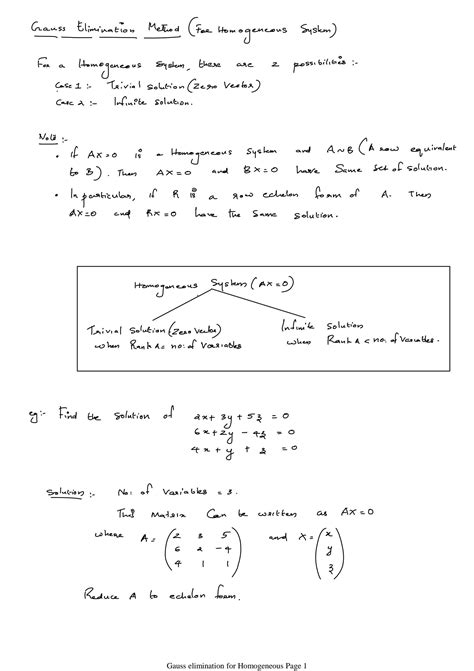 Gauss Elimination Method (For Homogeneous System)
For a Homogeneous System, there are 2 possibilities :-
Case 1 :- Trivial Solution (Zero Vector)
Case 2 :- Infinite Solution.
Note :-
• If AX=0 is a Homogeneous System and A~B (A row equivalent
to B). Then AX=0 and BX=0 have Same Set of Solution.
• In particular, if R is a row echelon form of A. Then
AX=0 and RX=0 have the same solution.
Homogeneous System (AX=0)
Trivial Solution (Zero Vector)
when Rank A = no: of Variables
Infinite Solution
when Rank A < no: of Variables.
eg:- Find the Solution of 2x + 3y + 5z = 0
6x + 2y - 4z = 0
4x + y + z = 0
Solution :- No: of Variables = 3.
This Matrix Can be written as AX=0
where A = (2 3 5
6 2 -4
4 1 1) and X = (x
y
z)
Reduce A to echelon form.
Gauss elimination for Homogeneous Page 1